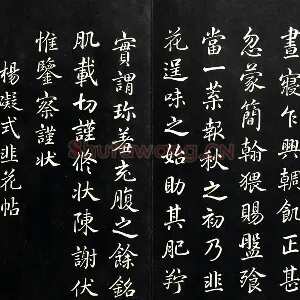 晝寢乍興調飢正甚
忽蒙簡翰猥賜盤飧
當一葉報秋之初乃韭
花逞味之始助其肥羜
實謂珍羞充腹之餘銘
肌載切謹修狀陳謝伏
惟鑒察謹狀
楊凝式韭花帖
Shufawang.CN